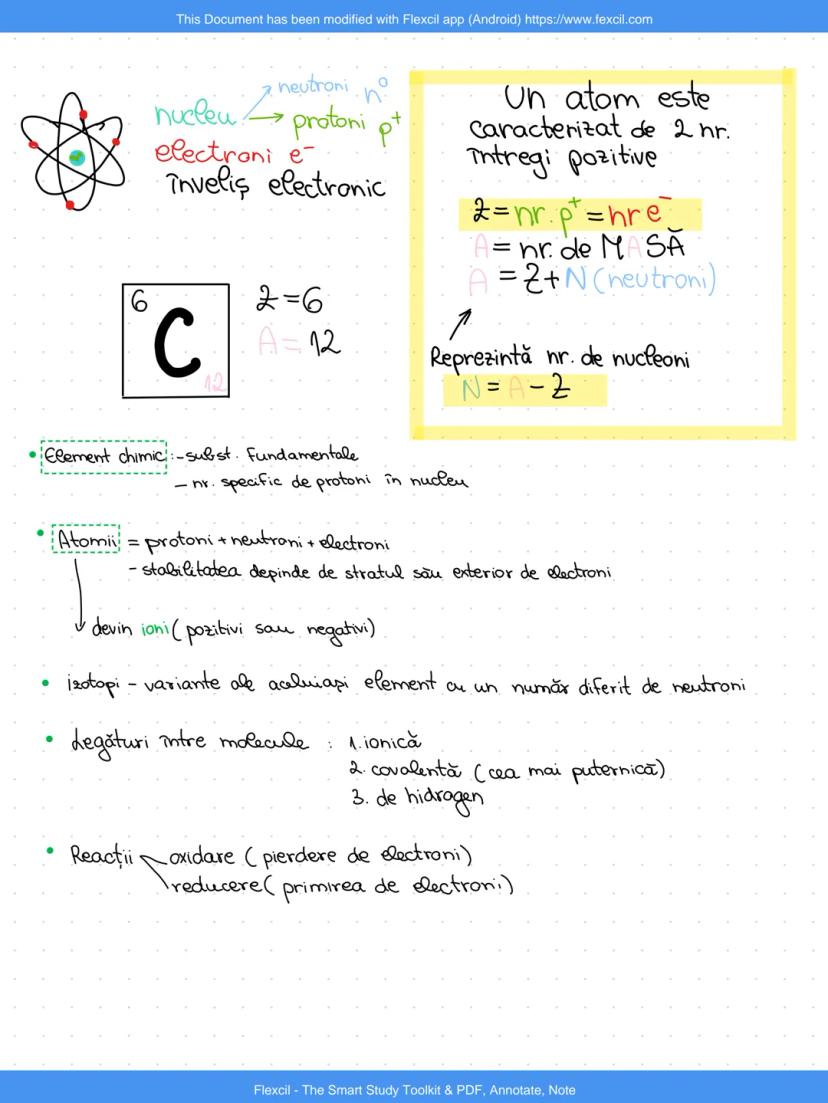 This Document has been modified with Flexcil app (Android) https://www.fexcil.com
nucleu → neutroni n⁰
→ protoni p⁺
electroni e⁻
înveliș electronic
Un atom este
caracterizat de 2 nr.
întregi pozitive
Z = nr. p⁺ = nr e⁻
A = nr. de MASĂ
A = Z + N (neutroni)
Reprezintă nr. de nucleoni
N = A - Z
6
C
12
Z = 6
A = 12
• Element chimic: - subst. fundamentale
- nr. specific de protoni în nucleu
• Atomii = protoni + neutroni + electroni
- stabilitatea depinde de stratul său exterior de electroni
devin ioni (pozitivi sau negativi)
• izotopi - variante ale aceluiași element cu un număr diferit de neutroni
• Legături între molecule : 1. ionică
2. covalentă (cea mai puternică)
3. de hidrogen
• Reacții oxidare (pierdere de electroni)
reducere (primirea de electroni)
Flexcil - The Smart Study Toolkit & PDF, Annotate, Note